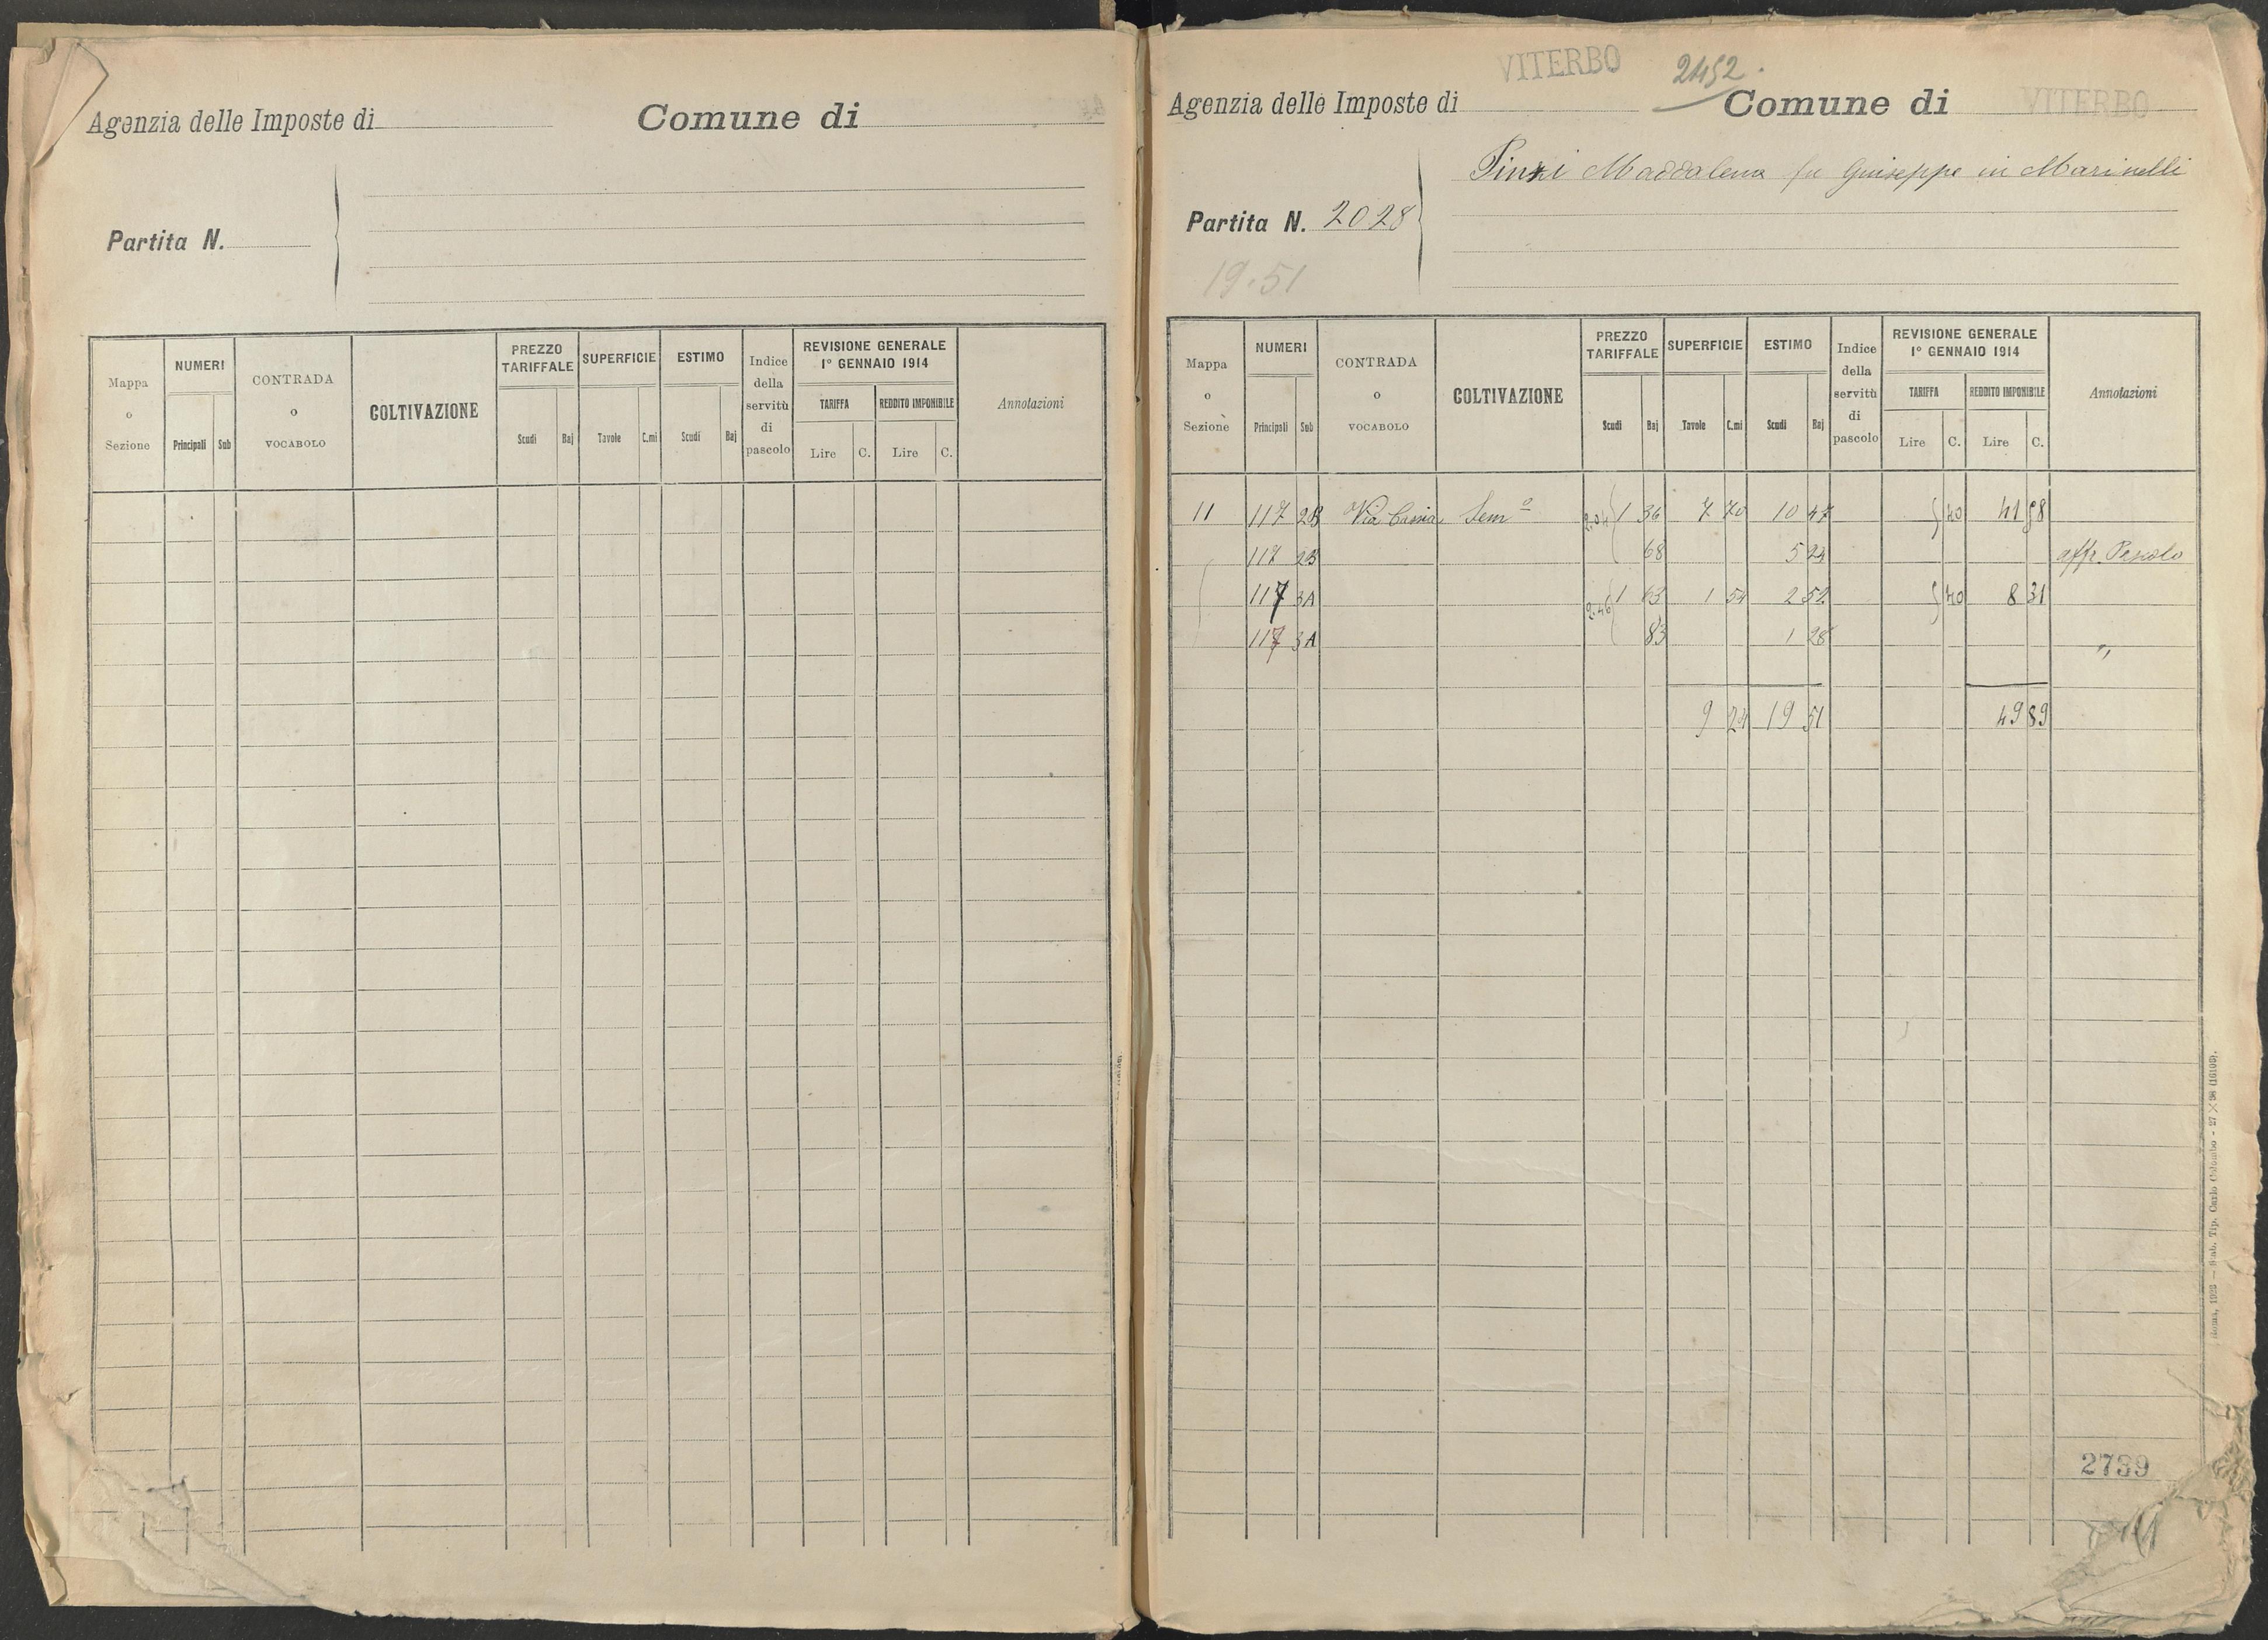 Agenzia delle Imposte di Comune di
Partita N.
Mappa o Sezione NUMERI CONTRADA o VOCABOLO COLTIVAZIONE PREZZO TARIFFALE SUPERFICIE ESTIMO Indice della servitù di pascolo REVISIONE GENERALE 1° GENNAIO 1914 Annotazioni
TARIFFA REDDITO IMPONIBILE
Principali Sub Scudi Baj Tavole C.mi Scudi Baj Lire C. Lire C.
VITERBO 2452
Agenzia delle Imposte di Comune di VITERBO
Pinzi Maddalena fu Giuseppe in Marinelli
Partita N. 2028
19.51
Mappa o Sezione NUMERI CONTRADA o VOCABOLO COLTIVAZIONE PREZZO TARIFFALE SUPERFICIE ESTIMO Indice della servitù di pascolo REVISIONE GENERALE 1° GENNAIO 1914 Annotazioni
TARIFFA REDDITO IMPONIBILE
Principali Sub Scudi Baj Tavole C.mi Scudi Baj Lire C. Lire C.
11 117 2B Via Cassia Sem° 2.04 1 36 7 70 10 47 40 41 58
117 2B 68 5 24 affr. Pascolo
117 3A 2.46 1 63 1 54 2 52 40 8 31
117 3A 83 1 28 "
9 24 19 51 49 89
2739
Roma, 1923 — Stab. Tip. Carlo Colombo - 27 × 38 (16109).